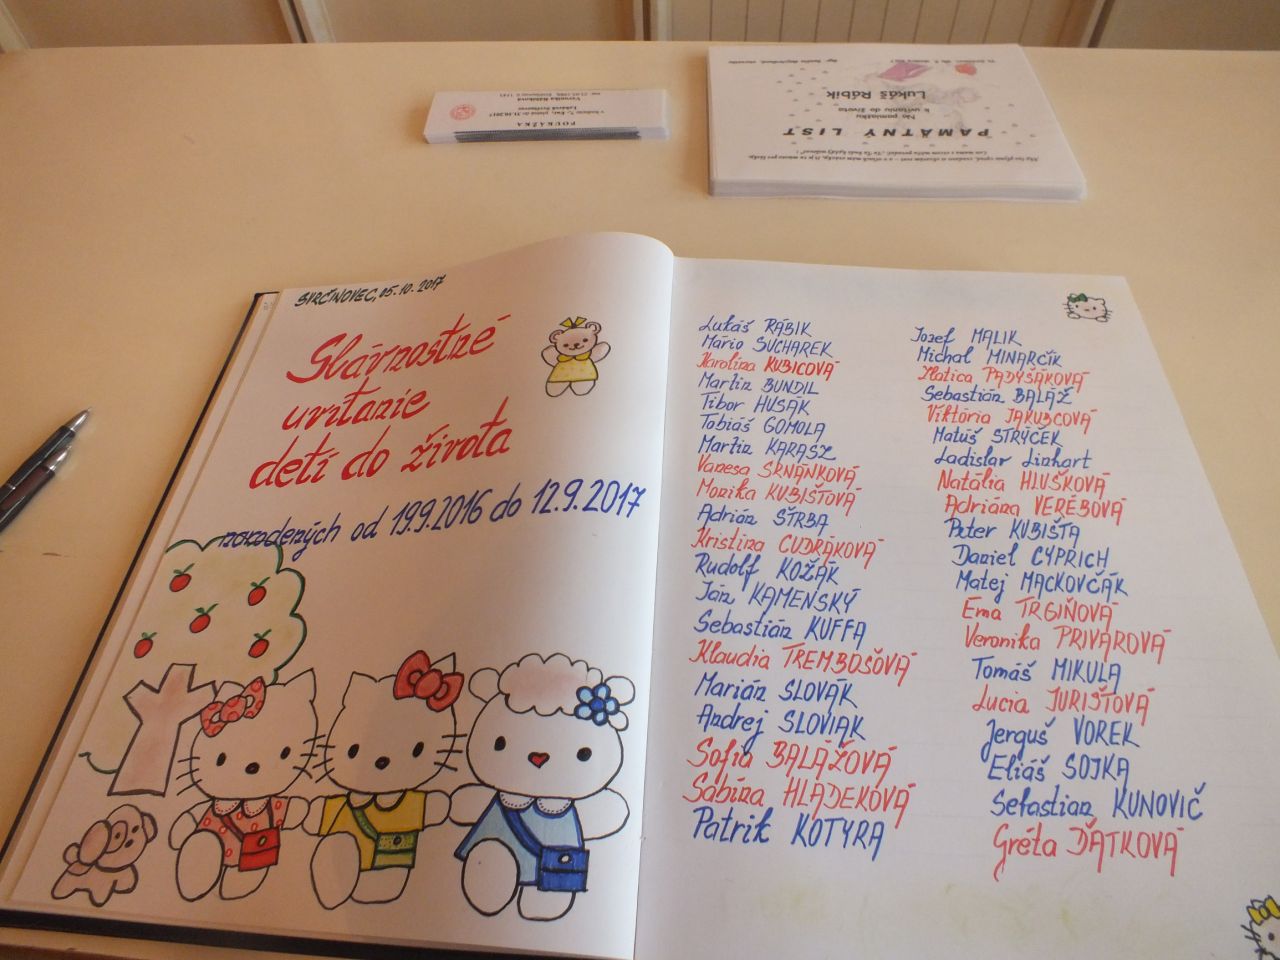 SVRČINOVEC, 05.10.2017
Slávnostné
uvítanie
detí do života
narodených od 19.9.2016 do 12.9.2017
Lukáš RÁBIK
Mário SUCHAREK
Karolína KUBICOVÁ
Martin BUNDIL
Tibor HUSÁK
Tobiáš GOMOLA
Martin KARASZ
Vanesa SRNÁNKOVÁ
Monika KUBIŠTOVÁ
Adrián ŠTRBA
Kristína CUDRÁKOVÁ
Rudolf KOŽÁK
Ján KAMENSKÝ
Sebastián KUFFA
Klaudia TREMBOŠOVÁ
Marián SLOVÁK
Andrej SLOVIAK
Sofia BALÁŽOVÁ
Sabína HLADEKOVÁ
Patrik KOTYRA
Jozef MALIK
Michal MINARČÍK
Zlatica PADYŠÁKOVÁ
Sebastián BALÁŽ
Viktória JAKUBCOVÁ
Matúš STRÝČEK
Ladislav Linhart
Natália HLUŠKOVÁ
Adriána VERÉBOVÁ
Peter KUBIŠTA
Daniel CYPRICH
Matej MACKOVČÁK
Ema TRGIŇOVÁ
Veronika PRIVAROVÁ
Tomáš MIKULA
Lucia JURIŠTOVÁ
Jerguš VOREK
Eliáš SOJKA
Sebastian KUNOVIČ
Gréta ĎATKOVÁ
POUKÁŽKA
PAMÄTNÝ LIST
Na pamiatku
k uvítaniu do života
Lukáš Rábik